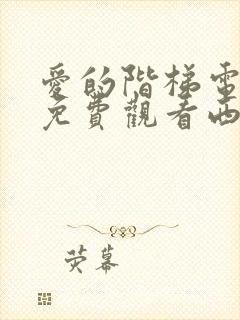 愛的階梯電
免費觀看西
荧幕